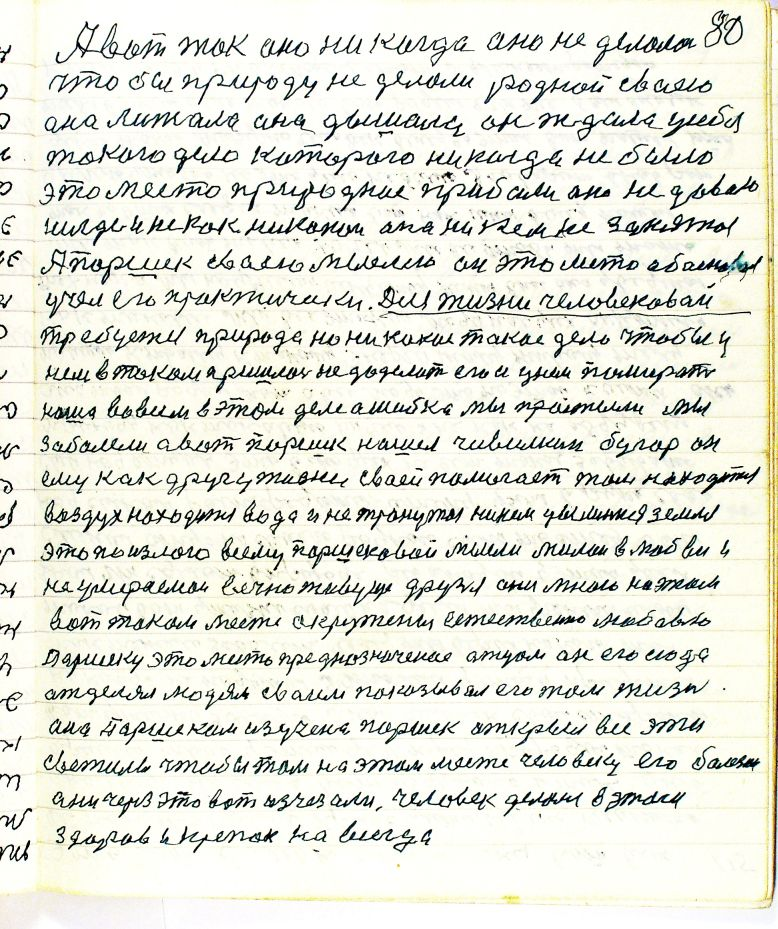 80
А вот так оно никогда оно не делолоя
что бы природу не делали родной сваею
ана лижала ана дышала, он ждала у себя
такого дело каторого никагда не было
это место природное прибали ано не даваю
никак никакой ана ни кем не занятоя
А паршек сваею мыслею он это место
учел его практически. Для жизни человековай
требуется природа но никакое такое дело чтобы и
нем в таком пришлоя не доделат его и умем памират
наша вовсем в этом деле ашибка мы прожили мы
забалели а вот паршек нашел чивилкин бугор он
ему как другу жизни сваей помогает там находится
воздух находится вода и не тронутоя никем цылинноя земля
это по излого всему паршековай мысли милаи в любви и
на умираемаи вечно живуще друзья они много на этам
вот таком месте окружены естественно любовю
Паршеку это место предназначеное атцом он его сюда
атделял людям сваем показывал его там жизн
ана Паршекам изучена паршек аткрыл все эти
светилы чтобы там на этам месте человеку его болезни
ани через это вот изчезали, человек делоя в этом
здаров и крепок на всегда